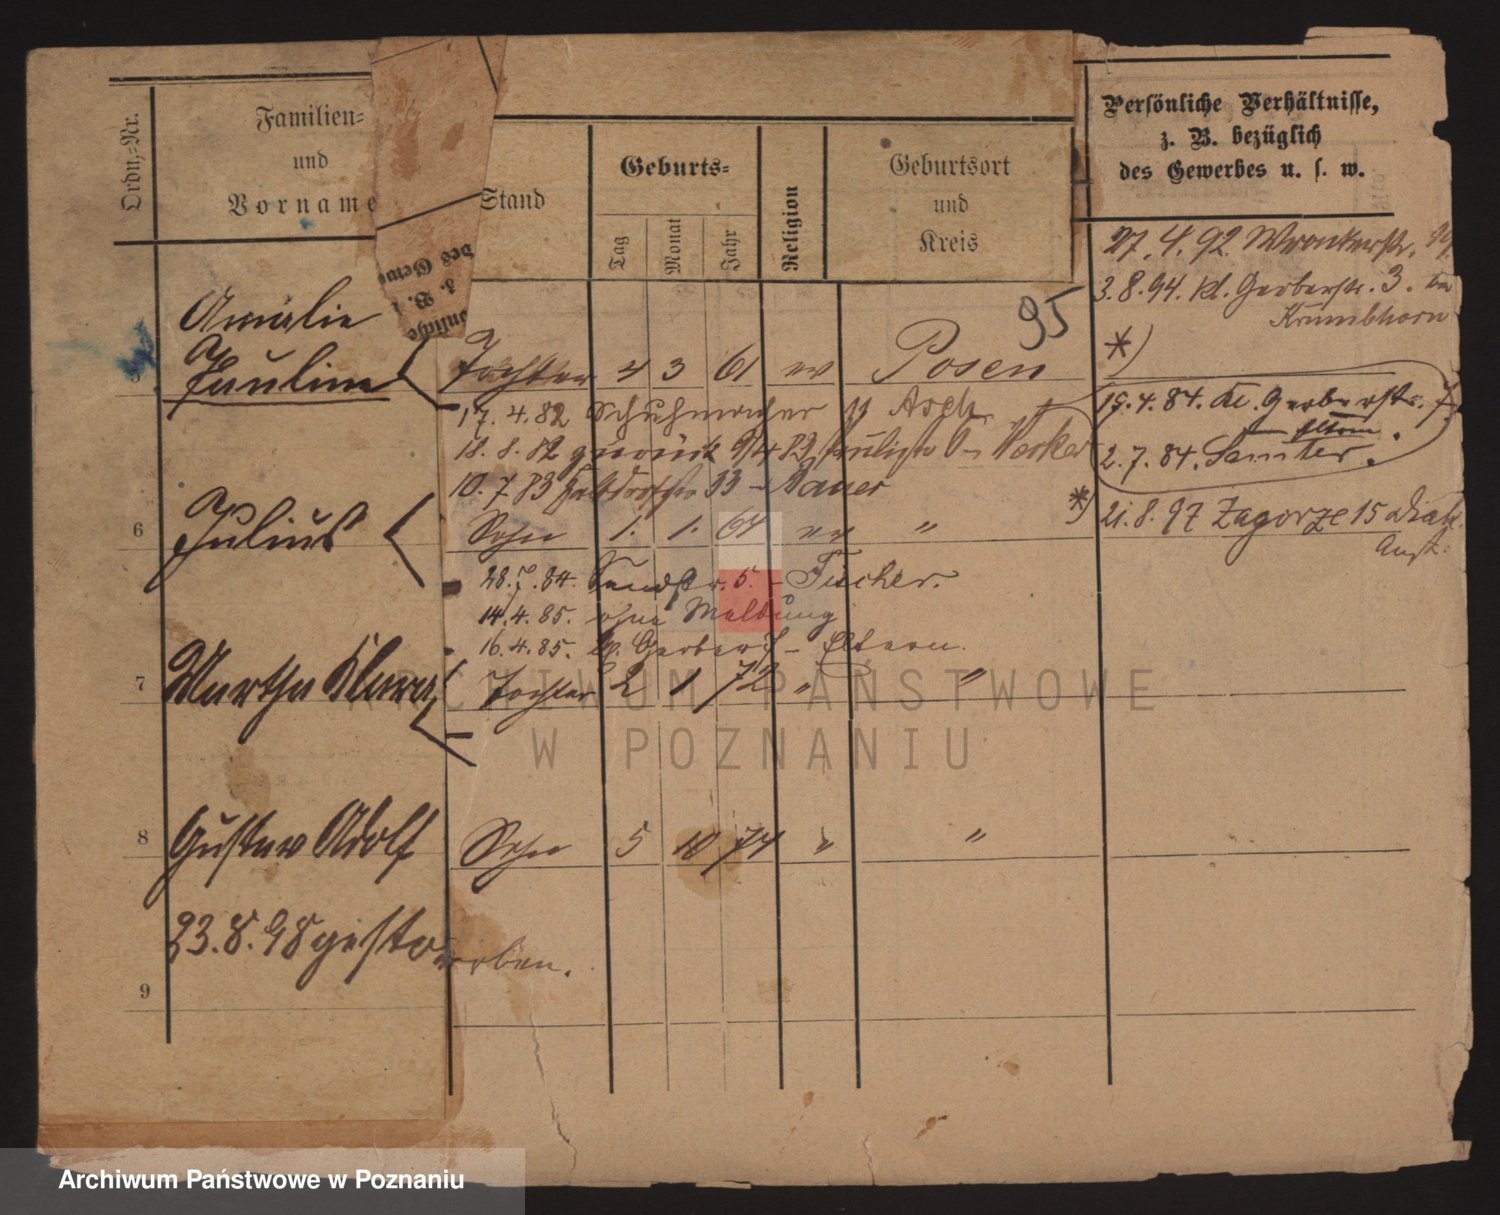 Ordn.-Nr.
Familien-
und
Vorname
Stand
Geburts-
Tag
Monat
Jahr
Religion
Geburtsort
und
Kreis
Persönliche Verhältnisse,
z. B. bezüglich
des Gewerbes u. s. w.
des Gewe
z. B.
önliche
95
27.4.92. Wronkerstr.
3.8.94. kl. Gerberstr. 3. bei
Krumbhorn
*)
Amalie
Pauline Tochter 4 3 61 ev Posen
17. 4. 82 Schuhmacher
18. 8. 82 zurück
10. 7. 83 33 - Bauer
19.4.84. Kl. Gerberstr. 7
Eltern
2.7.84. Samter.
6 Julius Sohn 1. 1. 64 ev "
*) 21.8.97 Zagorze 15 Diak.
Anst.
28.7.84. Sandstr. 5. - Fischer.
14.4.85. ohne Meldung
16.4.85. Gerber - Eltern.
7 Martha Klara Tochter 2 1 72 " "
8 Gustav Adolf Sohn 5 10 74 " "
23.8.98 gestorben.
9
ARCHIWUM PAŃSTWOWE
W POZNANIU
Archiwum Państwowe w Poznaniu